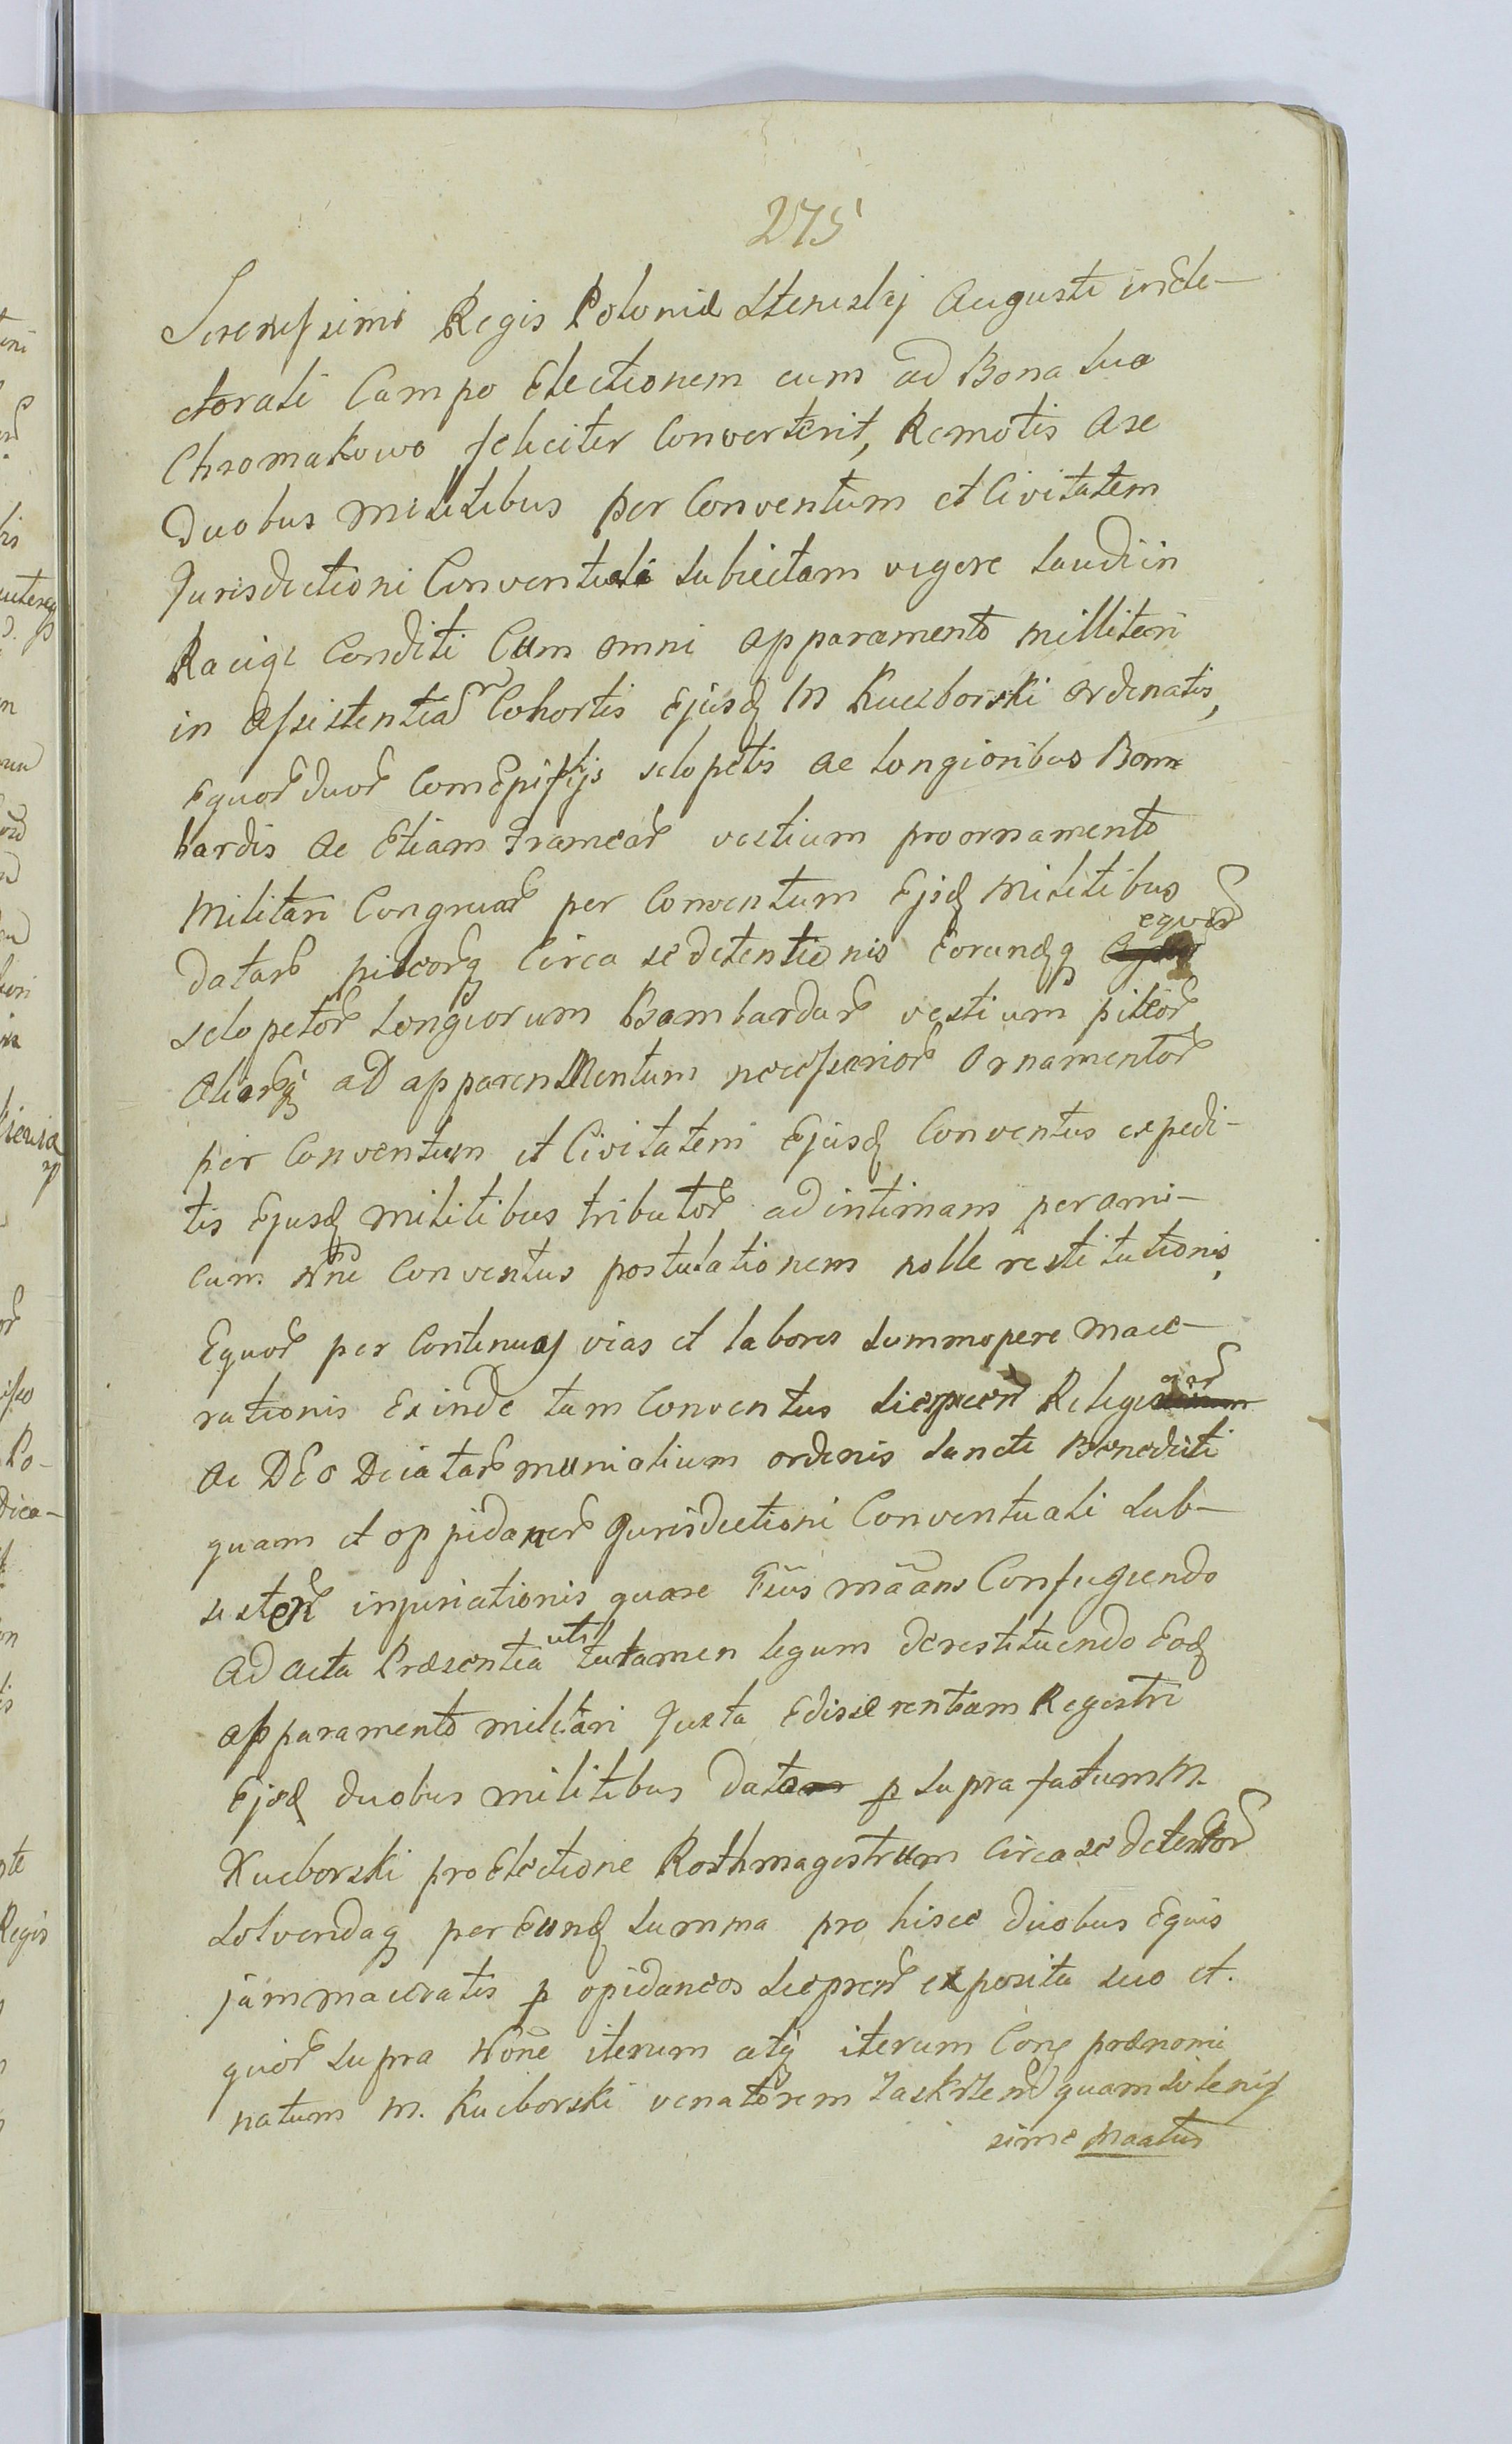 275
Serenissimi Regis Poloniæ Stanislaj Augusti in Ele-
ctorali Campo Electionem cum ad Bona sua
Chromakowo feliciter Converterit, Remotis a se
Duobus militibus per Conventum et Civitatem
Jurisdictioni Conventuali subiectam vigore laudi in
Raciąż Conditi Cum omni apparamento millitari
in assistentiam Cohortis Ejusd M Kuczborski ordinatis,
Equor̄ duor̄ Com Epiphijs sclopetis ac longioribus Bom
bardis ac Etiam framear̄ vestium pro ornamento
Militari Congruar̄ per Conventum Ejsd Militibus
datar̄ pileorq Circa se detentionis Eorundq equor̄
sclopetor̄ Longiorum Bombardar̄ vestium pileor̄
aliorq ad apparenMentum necessarior̄ Ornamentor̄
per Conventum et Civitatem Ejusd Conventus expedi-
tis Ejusd militibus tributor̄ ad intimam per ami-
cum Conventus postulationem nolle restitutionis,
Equor̄ per Continuas vias et labores summopere mace-
rationis Exinde tam Conventus Sierpcen̄
ac DEO Dicatar̄ monialium ordinis Sancti Benedicti
quam et oppidanor̄ Jurisdictioni Conventuali sub-
sisten̄ injuriationis quare Confugiendo
ad acta Præsentia uti tutamen legum de restituendo Eod
apparamento militari Juxta Edisserentiam Regestri
Ejsd duobus militibus dato p supra fatum M.
Kuczborski pro Electione Rothmagistrum Circa se detentor̄
solvendaq per Eund summa pro hisce duobus Equis
jam maceratis p opidaneos Sieprcen̄ exposita suo et.
quior̄ supra Nōne iterum atq iterum Cong prænomi
natum M. Kuczborski venatorem Zaskrzen̄ quam solenis
sime Maatus